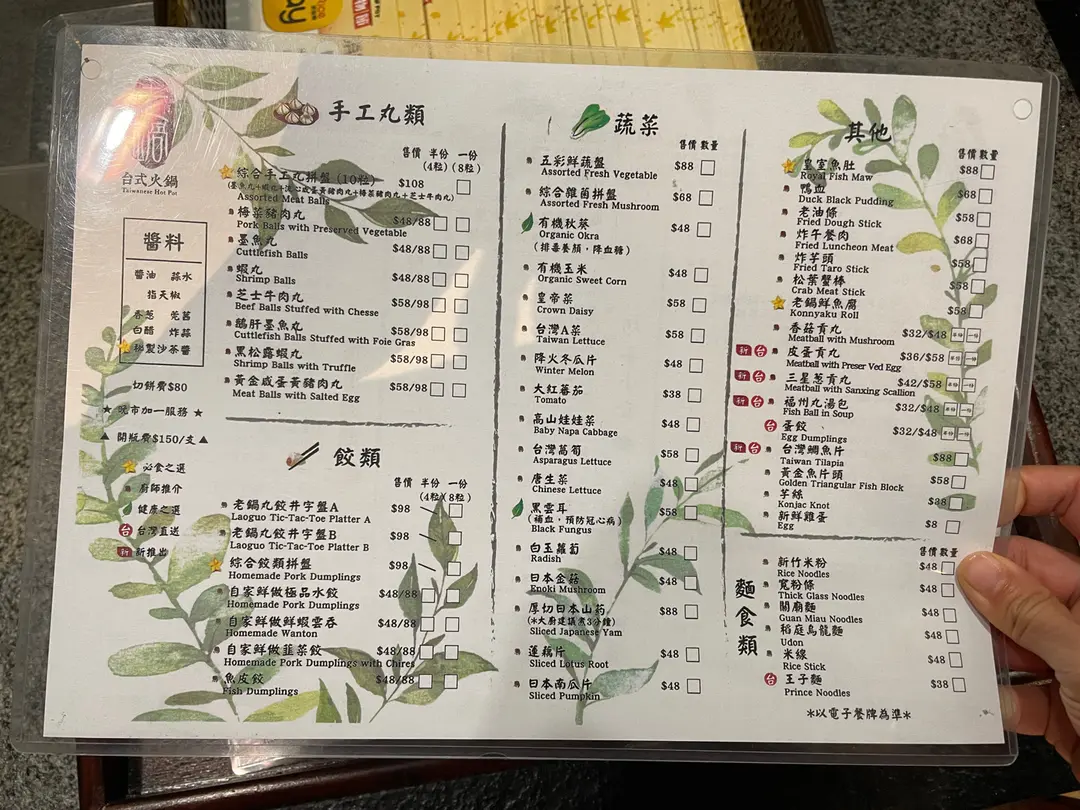 台式火鍋
Taiwanese Hot Pot
醬料
醬油 蒜水
指天椒
香蔥 芫茜
白醋 炸蒜
秘製沙茶醬
切餅費$80
★ 晚市加一服務 ★
▲ 開瓶費$150/支 ▲
必食之選
廚師推介
健康之選
台 台灣直送
新 新推出
手工丸類
售價 半份 一份
(4粒) (8粒)
綜合手工丸拼盤 (10粒) $108
Assorted Meat Balls
梅菜豬肉丸 $48/88
Pork Balls with Preserved Vegetable
墨魚丸 $48/88
Cuttlefish Balls
蝦丸 $48/88
Shrimp Balls
芝士牛肉丸 $58/98
Beef Balls Stuffed with Chesse
鵝肝墨魚丸 $58/98
Cuttlefish Balls Stuffed with Foie Gras
黑松露蝦丸 $58/98
Shrimp Balls with Truffle
黃金咸蛋黃豬肉丸 $58/98
Meat Balls with Salted Egg
餃類
售價 半份 一份
(4粒) (8粒)
老鍋丸餃井字盤A $98
Laoguo Tic-Tac-Toe Platter A
老鍋丸餃井字盤B $98
Laoguo Tic-Tac-Toe Platter B
綜合餃類拼盤 $98
Homemade Pork Dumplings
自家鮮做極品水餃 $48/88
Homemade Pork Dumplings
自家鮮做鮮蝦雲吞 $48/88
Homemade Wanton
自家鮮做韮菜餃 $48/88
Homemade Pork Dumplings with Chires
魚皮餃 $48/88
Fish Dumplings
蔬菜
售價 數量
五彩鮮蔬盤 $88
Assorted Fresh Vegetable
綜合雜菌拼盤 $68
Assorted Fresh Mushroom
有機秋葵 $48
Organic Okra
(排毒養顏，降血糖)
有機玉米 $48
Organic Sweet Corn
皇帝菜 $58
Crown Daisy
台灣A菜 $58
Taiwan Lettuce
降火冬瓜片 $48
Winter Melon
大紅蕃茄 $38
Tomato
高山娃娃菜 $48
Baby Napa Cabbage
台灣萵筍 $58
Asparagus Lettuce
唐生菜 $48
Chinese Lettuce
黑雲耳 $58
(補血，預防冠心病)
Black Fungus
白玉蘿蔔 $48
Radish
日本金菇 $48
Enoki Mushroom
厚切日本山葯 $88
(*大廚建議煮3分鐘)
Sliced Japanese Yam
蓮藕片 $48
Sliced Lotus Root
日本南瓜片 $48
Sliced Pumpkin
其他
售價 數量
皇室魚肚 $88
Royal Fish Maw
鴨血 $68
Duck Black Pudding
老油條 $58
Fried Dough Stick
炸午餐肉 $68
Fried Luncheon Meat
炸芋頭 $58
Fried Taro Stick
松葉蟹棒 $58
Crab Meat Stick
老鍋鮮魚腐 $58
Konnyaku Roll
香菇貢丸 $32/$48 半份 一份
Meatball with Mushroom
新 台 皮蛋貢丸 $36/$58 半份 一份
Meatball with Preser Ved Egg
新 台 三星葱貢丸 $42/$58 半份 一份
Meatball with Sanxing Scallion
新 台 福州丸湯包 $32/$48 半份 一份
Fish Ball in Soup
台 蛋餃 $32/$48 半份 一份
Egg Dumplings
新 台 台灣鯛魚片 $88
Taiwan Tilapia
黃金魚片頭 $58
Golden Triangular Fish Block
芋絲 $38
Konjac Knot
新鮮雞蛋 $8
Egg
麵食類
售價 數量
新竹米粉 $48
Rice Noodles
寬粉條 $48
Thick Glass Noodles
關廟麵 $48
Guan Miau Noodles
稻庭烏龍麵 $48
Udon
米線 $48
Rice Stick
台 王子麵 $38
Prince Noodles
*以電子餐牌為準*